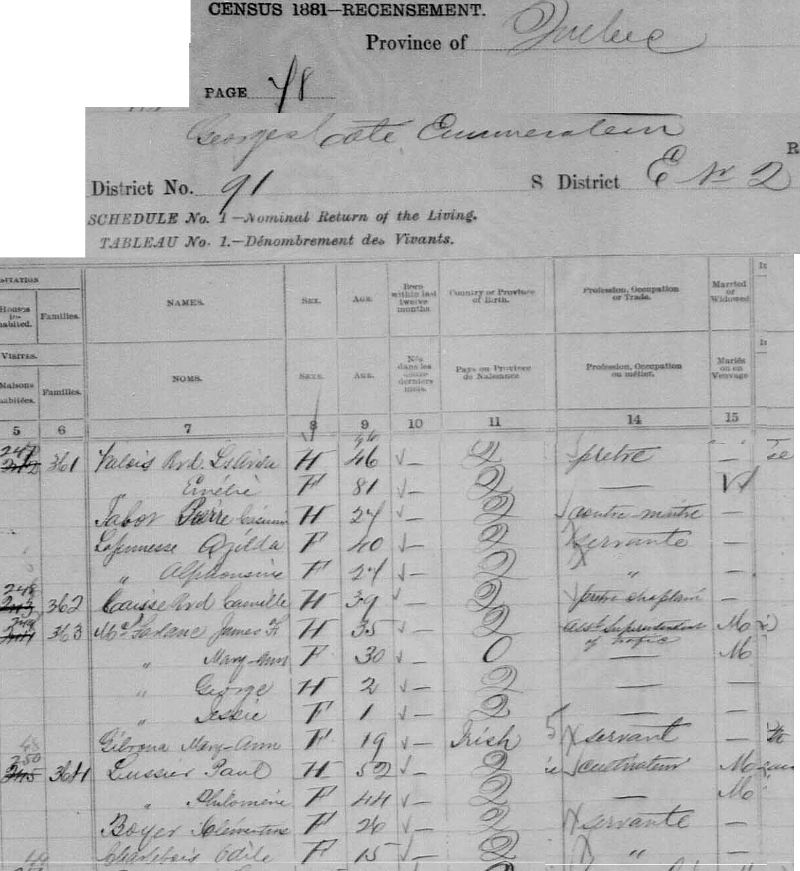 CENSUS 1881—RECENSEMENT.
Province of Quebec
PAGE 78
Georges Coté Enumerateur
District No. 91 S District E No 2
SCHEDULE No. 1—Nominal Return of the Living.
TABLEAU No. 1.—Dénombrement des Vivants.
Houses Inhabited. Families. NAMES. SEX. AGE. Born within last twelve months. Country or Province of Birth. Profession, Occupation or Trade. Married or Widowed
VISITES.
Maisons habitées. Familles. NOMS. SEXE. AGE. Nés dans les douze derniers mois. Pays ou Province de Naissance. Profession, Occupation ou métier. Mariés ou en Veuvage
5 6 7 8 9 10 11 14 15
361 Valois Rvd H 46 — Q prêtre —
Emélie F 81 — Q — W
Tabor Pierre H 27 — Q contre-maitre —
Lajeunesse Ozilda F 40 — Q servante —
" Alphonsine F 27 — Q " —
362 Caisse Rvd Camille H 39 — Q prêtre chaplain —
363 McFarlane James H 35 — Q asst Suprendent of trafic M
" Mary-Ann F 30 — O — M
" George H 2 — Q — —
" Jessie F 1 — Q — —
Mary-Ann F 19 — Irish 5 servant —
250 364 Lussier Paul H 52 — Q cultivateur M
" Philomène F 44 — Q — M
Boyer Clémentine F 26 — Q servante —
Charlebois Odile F 15 — Q " —